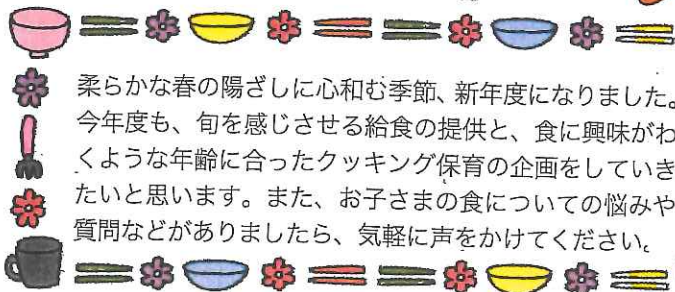 柔らかな春の陽ざしに心和む季節、新年度になりました。
今年度も、旬を感じさせる給食の提供と、食に興味がわ
くような年齢に合ったクッキング保育の企画をしていき
たいと思います。また、お子さまの食についての悩みや
質問などがありましたら、気軽に声をかけてください。